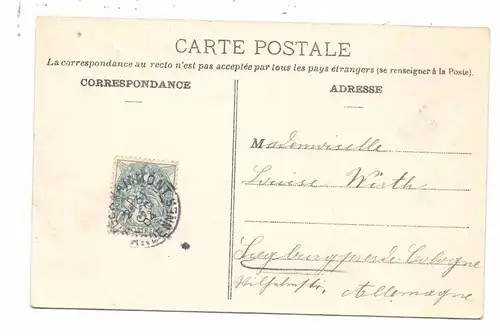 CARTE POSTALE
La correspondance au recto n'est pas acceptée par tous les pays étrangers (se renseigner à la Poste).
CORRESPONDANCE
ADRESSE
Mademoiselle
Louise Wirth
Siegburg près de Cologne
Allemagne